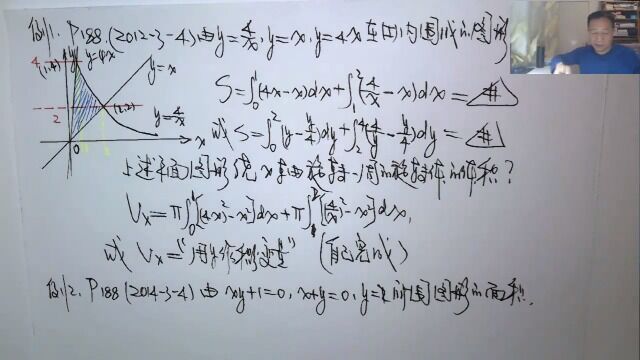 例1. P188 (2012-3-4) 由 y=4/x, y=x, y=4x 在Ⅰ内围成的图形
4 (1,4) y=4x y=x
S=∫₀¹(4x-x)dx+∫₁²(4/x-x)dx=#
2 (2,2) y=4/x
0 x
或 S=∫₀²(y-y/4)dy+∫₂⁴(4/y-y/4)dy=#
上述平面图形绕x轴旋转一周的旋转体的体积?
Vx=π∫₀¹[(4x)²-x²]dx+π∫₁²[(4/x)²-x²]dx,
或 Vx="用y作积分变量" (自己完成)
例2. P188 (2014-3-4) 由 xy+1=0, x+y=0, y=2 所围图形的面积.